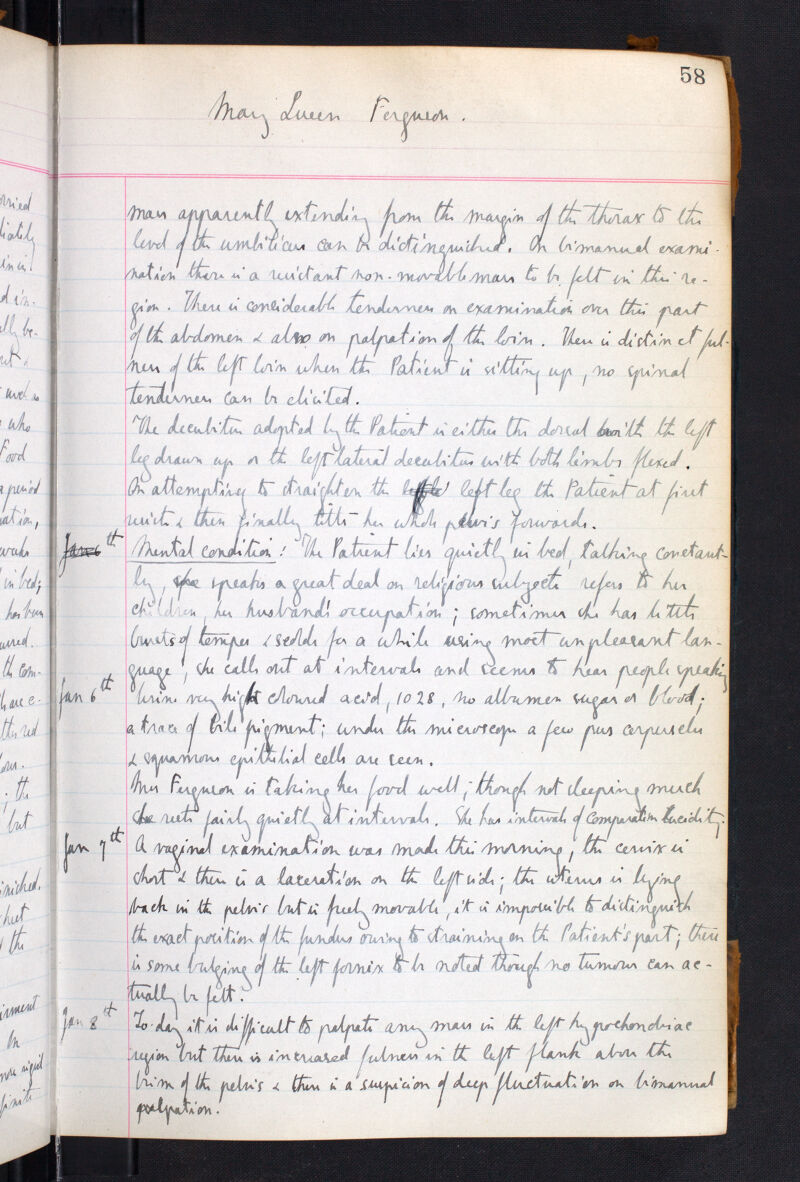 58
Mary Queen Ferguson.
mass apparently extending from the margin of the thorax to the
level of the umbilicus can be distinguished. On bimanual exami-
nation there is a resistant non-movable mass to be felt in this re-
gion. There is considerable tenderness on examination over this part
of the abdomen & also on palpation of the loin. There is distinct ful-
ness of the left loin when the Patient is sitting up, no spinal
tenderness can be elicited.
The decubitus adopted by the Patient is either the dorsal with the left
leg drawn up or the left lateral decubitus with both limbs flexed.
On attempting to straighten the left leg the Patient at first
resists & then finally tilts her whole pelvis forwards.
Jan 6th Mental condition: The Patient lies quietly in bed, talking constant-
ly, speaks a great deal on religious subjects refers to her
children, her husband's occupation; sometimes she has little
bursts of temper & scolds for a while using most unpleasant lan-
guage, she calls out at intervals and seems to hear people speaking
Jan 6th Urine very high coloured acid, 1028, no albumen sugar or blood;
a trace of bile pigment; under the microscope a few pus corpuscles
& squamous epithelial cells are seen.
Mrs Ferguson is taking her food well; though not sleeping much
she rests fairly quietly at intervals. She has intervals of comparative lucidity.
Jan 7th A vaginal examination was made this morning, the cervix is
short & there is a laceration on the left side; the uterus is lying
back in the pelvis but is freely movable, it is impossible to distinguish
the exact position of the fundus owing to straining on the Patient's part; there
is some bulging of the left fornix to be noted though no tumour can ac-
tually be felt.
Jan 8th To-day it is difficult to palpate any mass in the left hypochondriac
region but there is increased fulness in the left flank above the
brim of the pelvis & there is a suspicion of deep fluctuation on bimanual
palpation.